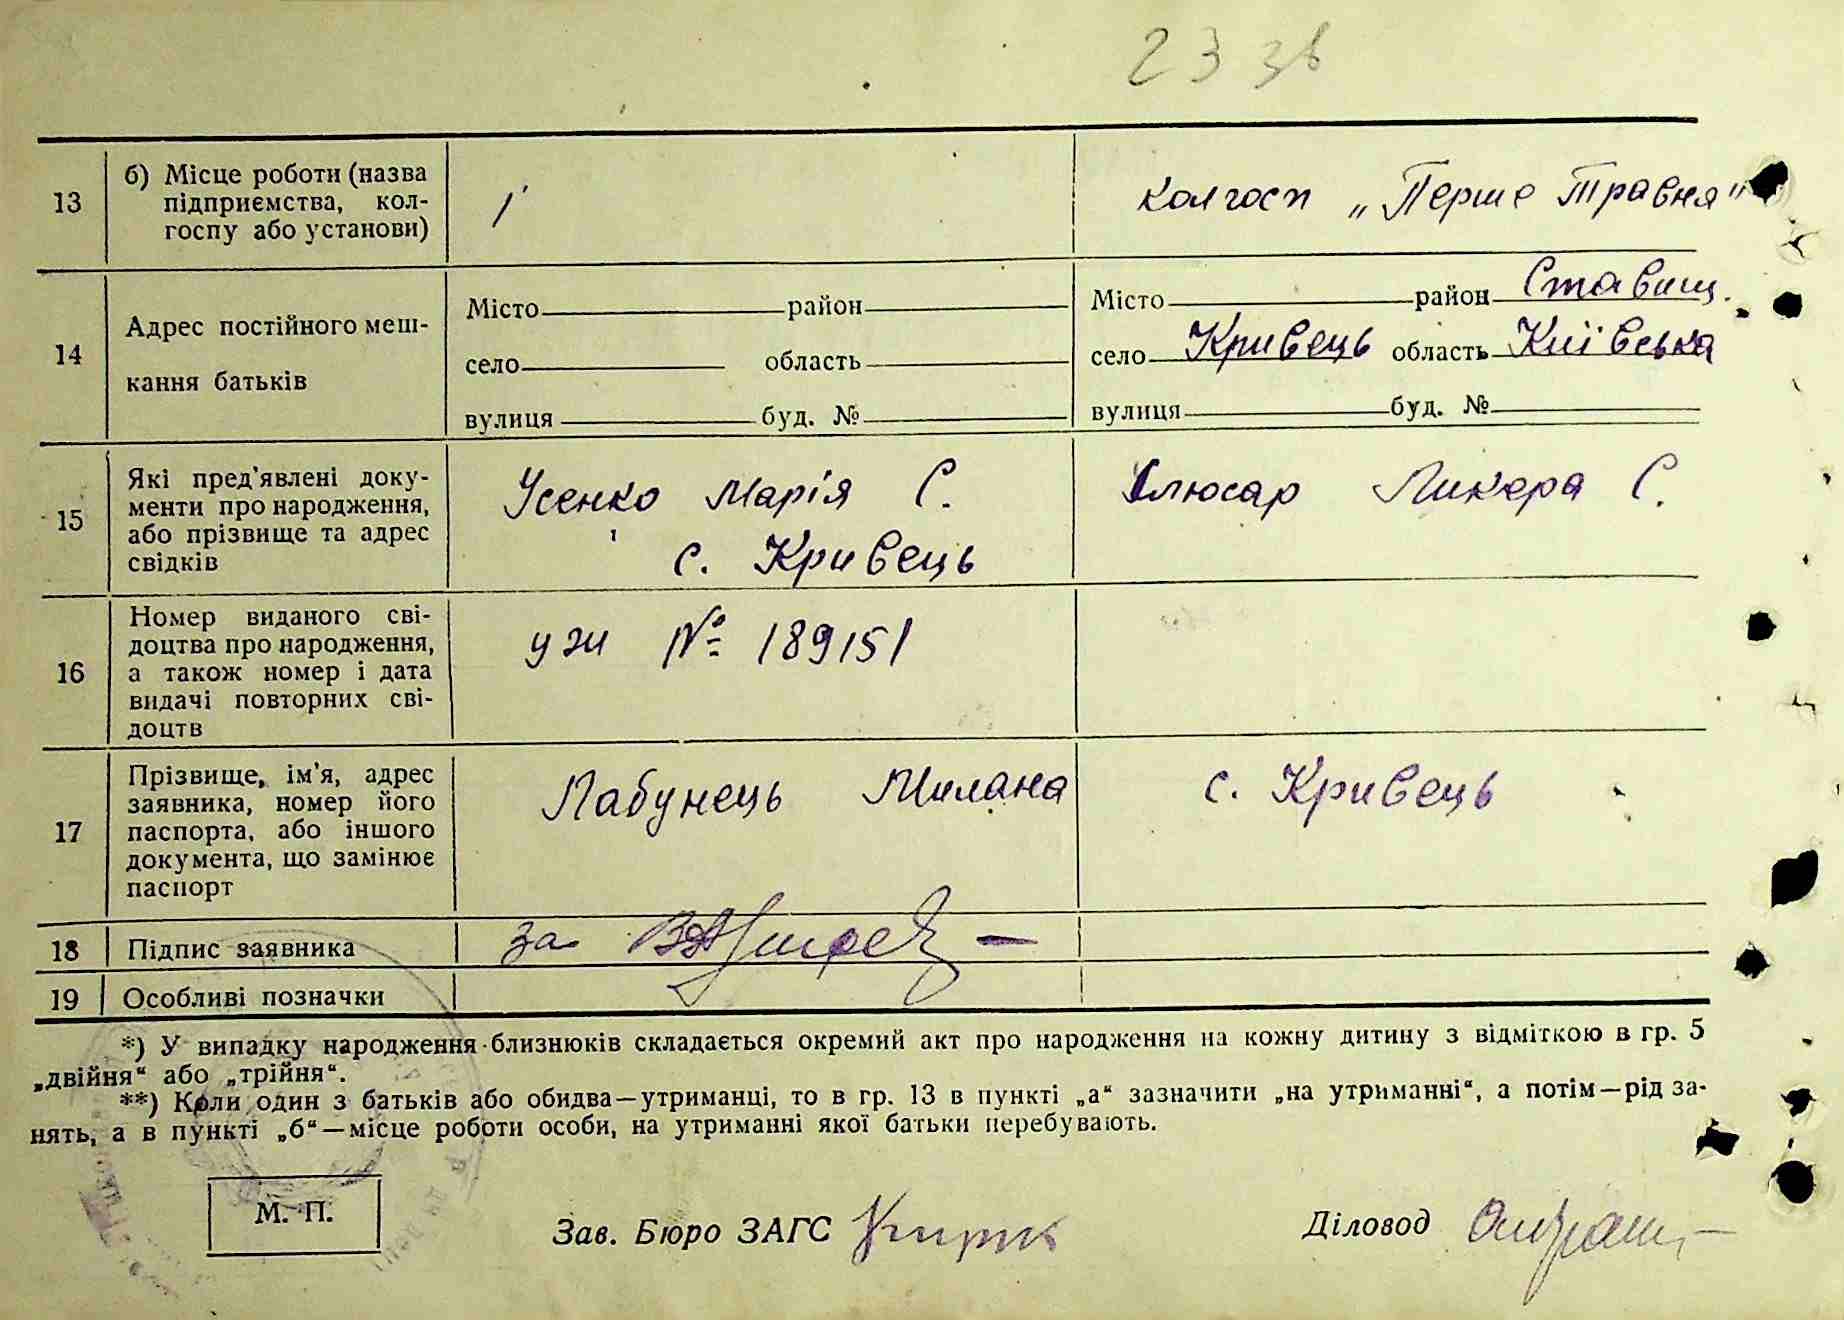 23 зв
13
б) Місце роботи (назва
підприємства, кол-
госпу або установи)
колгосп „Перше Травня"
14
Адрес постійного меш-
кання батьків
Місто район
село область
вулиця буд. №
Місто район Ставищ.
село Кривець область Київська
вулиця буд. №
15
Які пред'явлені доку-
менти про народження,
або прізвище та адрес
свідків
Усенко Марія С.
с. Кривець
Слюсар Ликера С.
16
Номер виданого сві-
доцтва про народження,
а також номер і дата
видачі повторних сві-
доцтв
№ 189151
17
Прізвище, ім'я, адрес
заявника, номер його
паспорта, або іншого
документа, що замінює
паспорт
Лабунець Милана
с. Кривець
18 Підпис заявника
за
19 Особливі позначки
*) У випадку народження близнюків складається окремий акт про народження на кожну дитину з відміткою в гр. 5
„двійня“ або „трійня“.
**) Коли один з батьків або обидва—утриманці, то в гр. 13 в пункті „а“ зазначити „на утриманні“, а потім—рід за-
нять, а в пункті „б“—місце роботи особи, на утриманні якої батьки перебувають.
М. П.
Зав. Бюро ЗАГС
Діловод